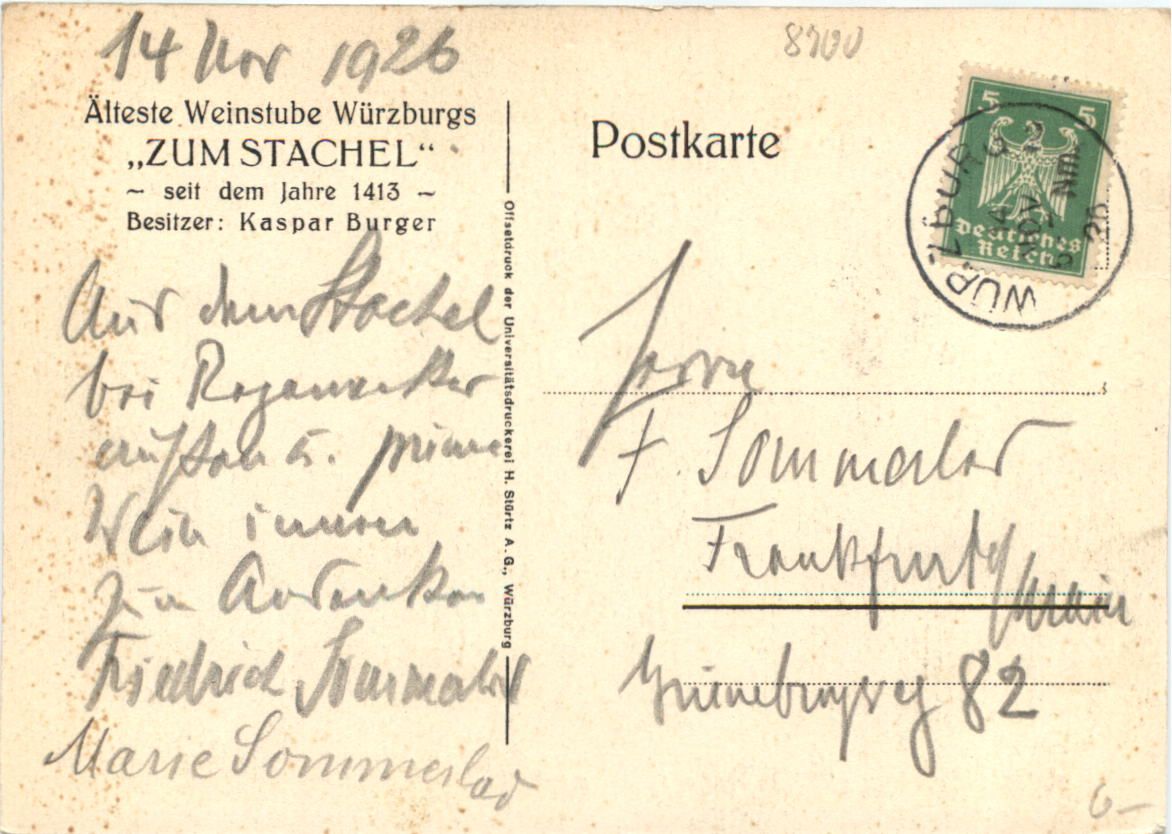 14 Nov 1926
8700
Älteste Weinstube Würzburgs
„ZUM STACHEL“
~ seit dem Jahre 1413 ~
Besitzer: Kaspar Burger
Postkarte
5 5
Deutsches
Reich
WÜRZBURG 2
14
NOV
Nm.
26
Offsetdruck der Universitätsdruckerei H. Stürtz A.G., Würzburg
Aus dem Stachel
bei
u. prima
Wein
zum Andenken
Friedrich Sommerlad
Marie Sommerlad
Herrn
F. Sommerlad
Frankfurt a/Main
Grüneburgweg 82
6-